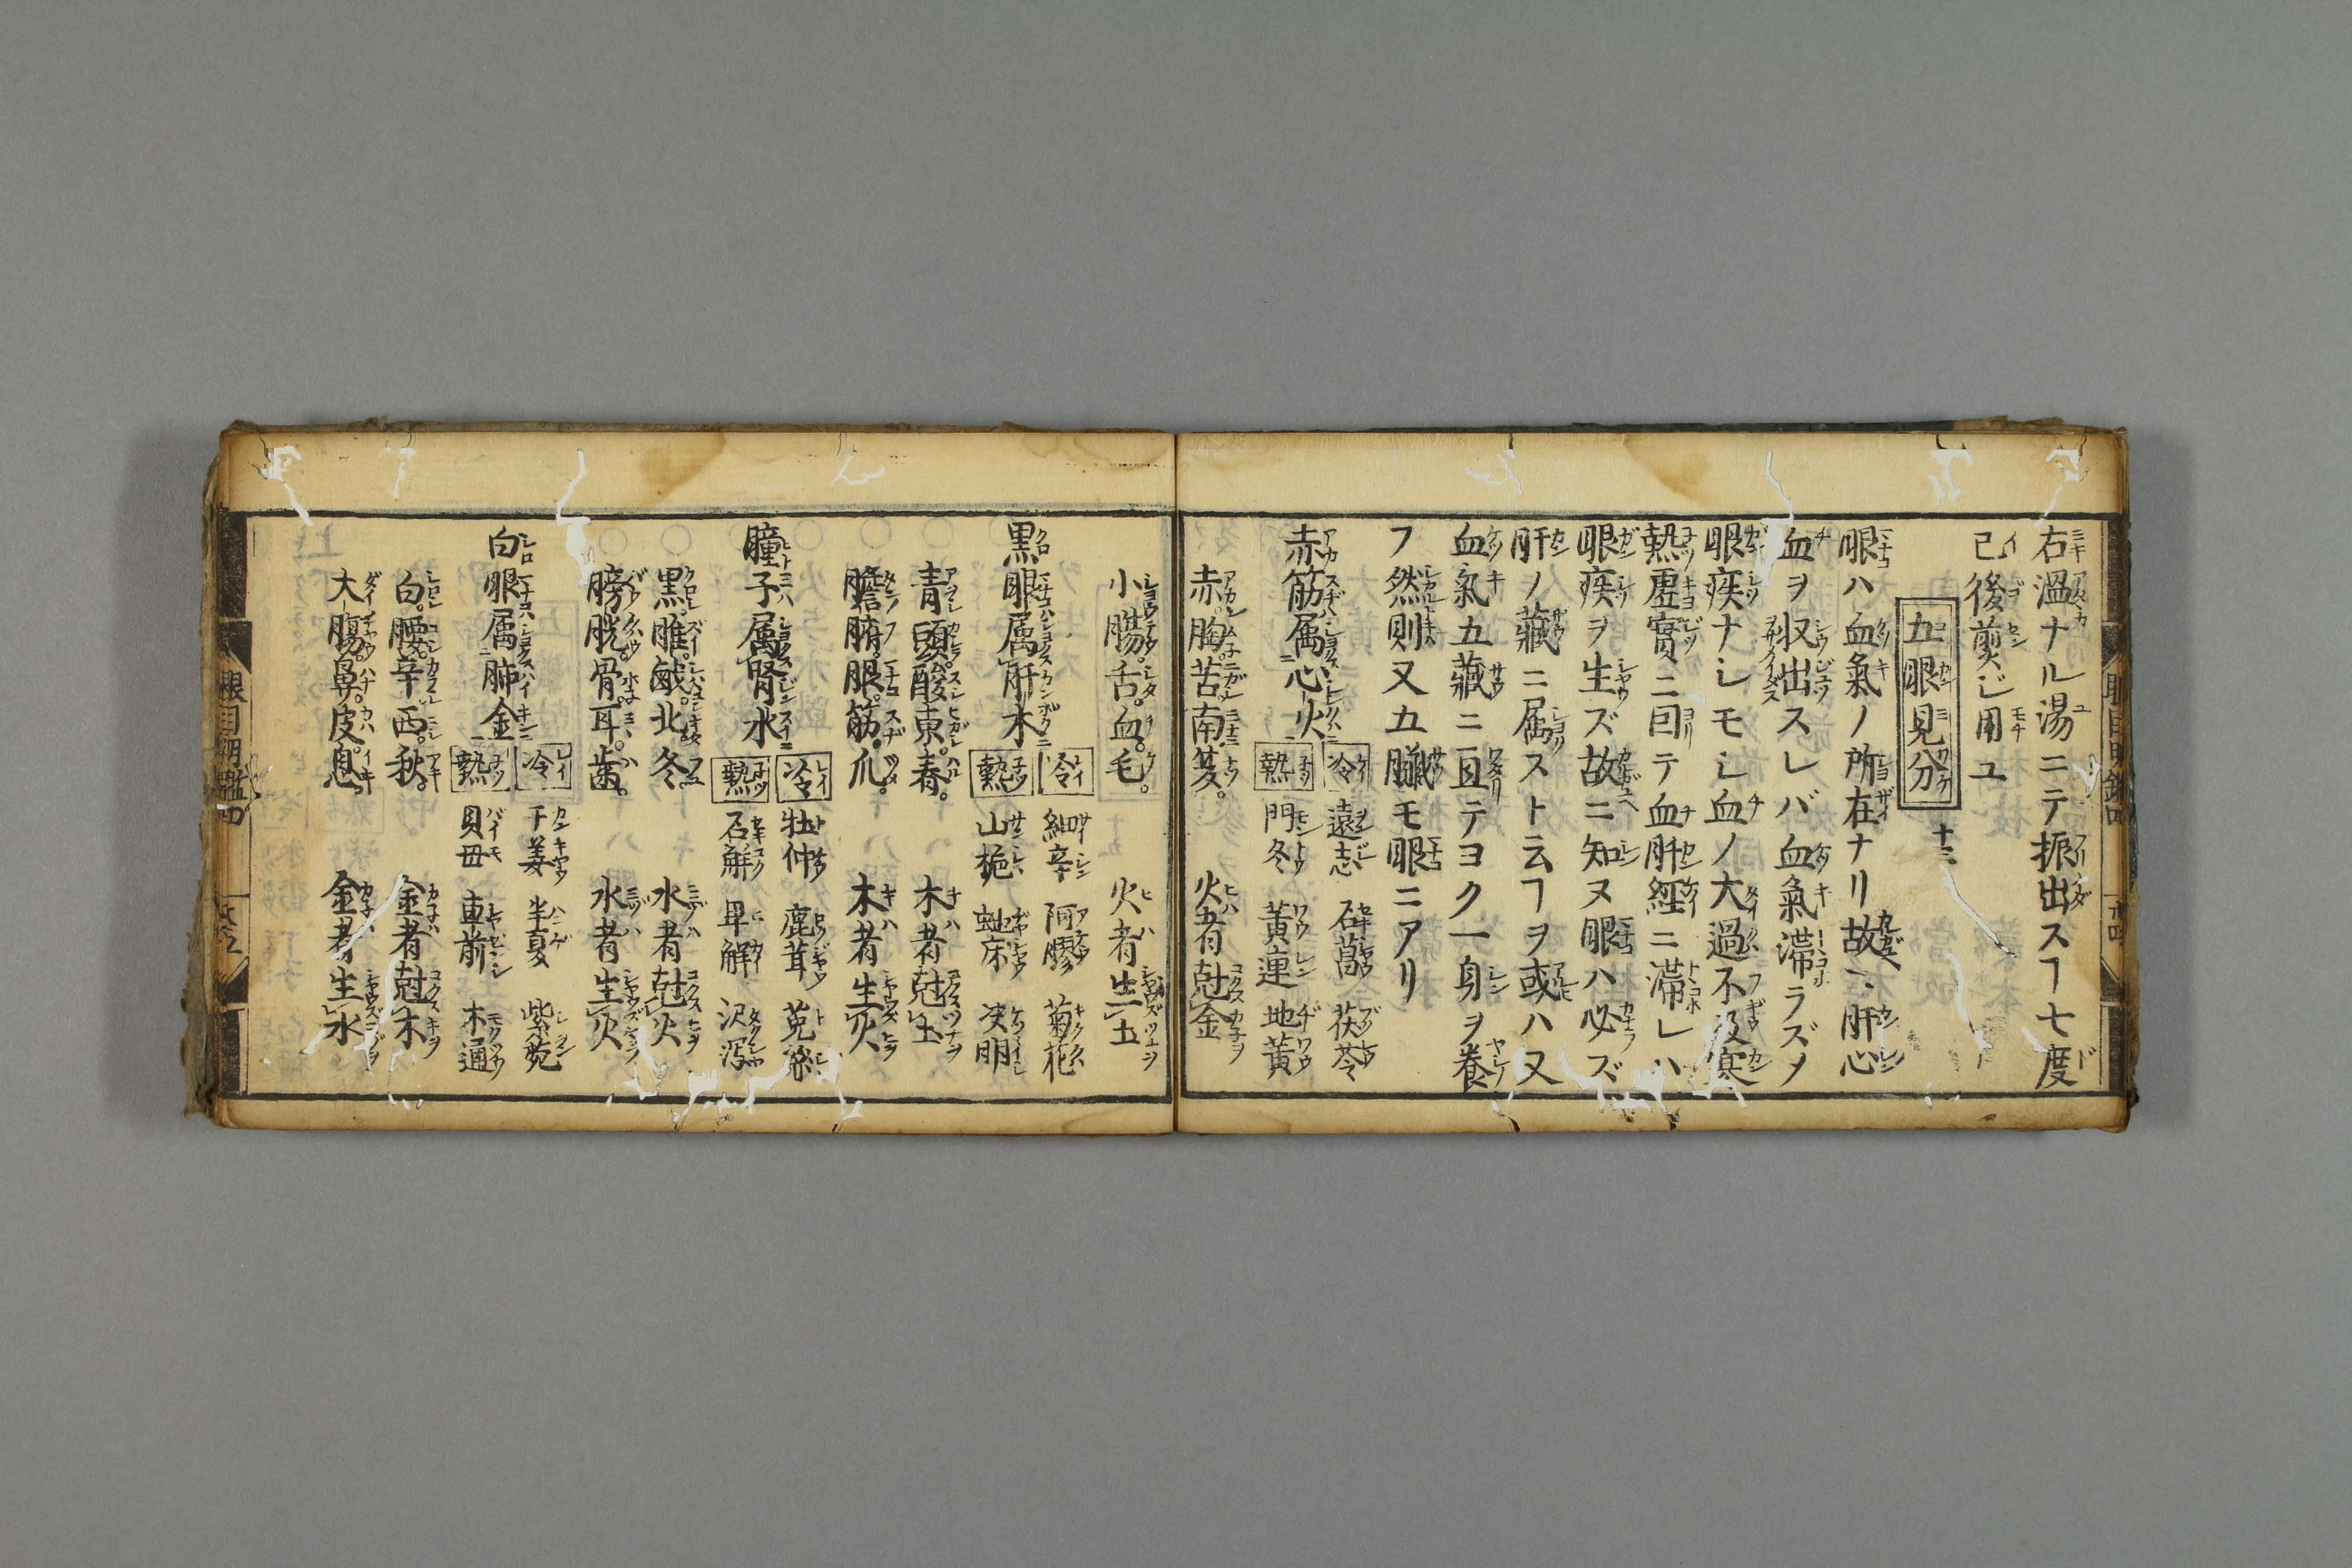 右溫ナル湯ニテ振出スヿ七度
已後煎ジ用ユ
五眼見分 十三
眼ハ血氣ノ所在ナリ故ニ肝心
血ヲ収出スレバ血氣滞ラズメ
眼疾ナシモシ血ノ大過不及寒
熱虛實ニ囙テ血肝經ニ滞レハ
眼疾ヲ生ズ故ニ知ヌ眼ハ必ズ
肝ノ藏ニ属スト云ヿヲ或ハ又
血氣五藏ニ亘テヨク一身ヲ養
フ然則又五臓モ眼ニアリ
赤筋属心火
冷 遠志 茯苓
熱 門冬 黃連 地黃
赤。胸。苦。南。夏。 火者尅金
小腸。舌。血。毛。 火者生土
黒眼属肝木
冷 細辛 阿膠 菊花
熱 山梔 虵床 决明
青。頭。酸。東。春。 木者尅土
膽腑。眼。筋。爪。 木者生火
瞳子属腎水
冷 牡仲 鹿茸 菟絲
熱 石斛 萆解 沢瀉
黒。脽。鹹。北。冬。 水者尅火
膀胱。骨。耳。歯。 水者生火
白眼属肺金
冷 干姜 半夏 紫菀
熱 貝母 車前 木通
白。腰。辛。西。秋。 金者尅木
大腸。鼻。皮。息。 金者生水
眼目明鑑四